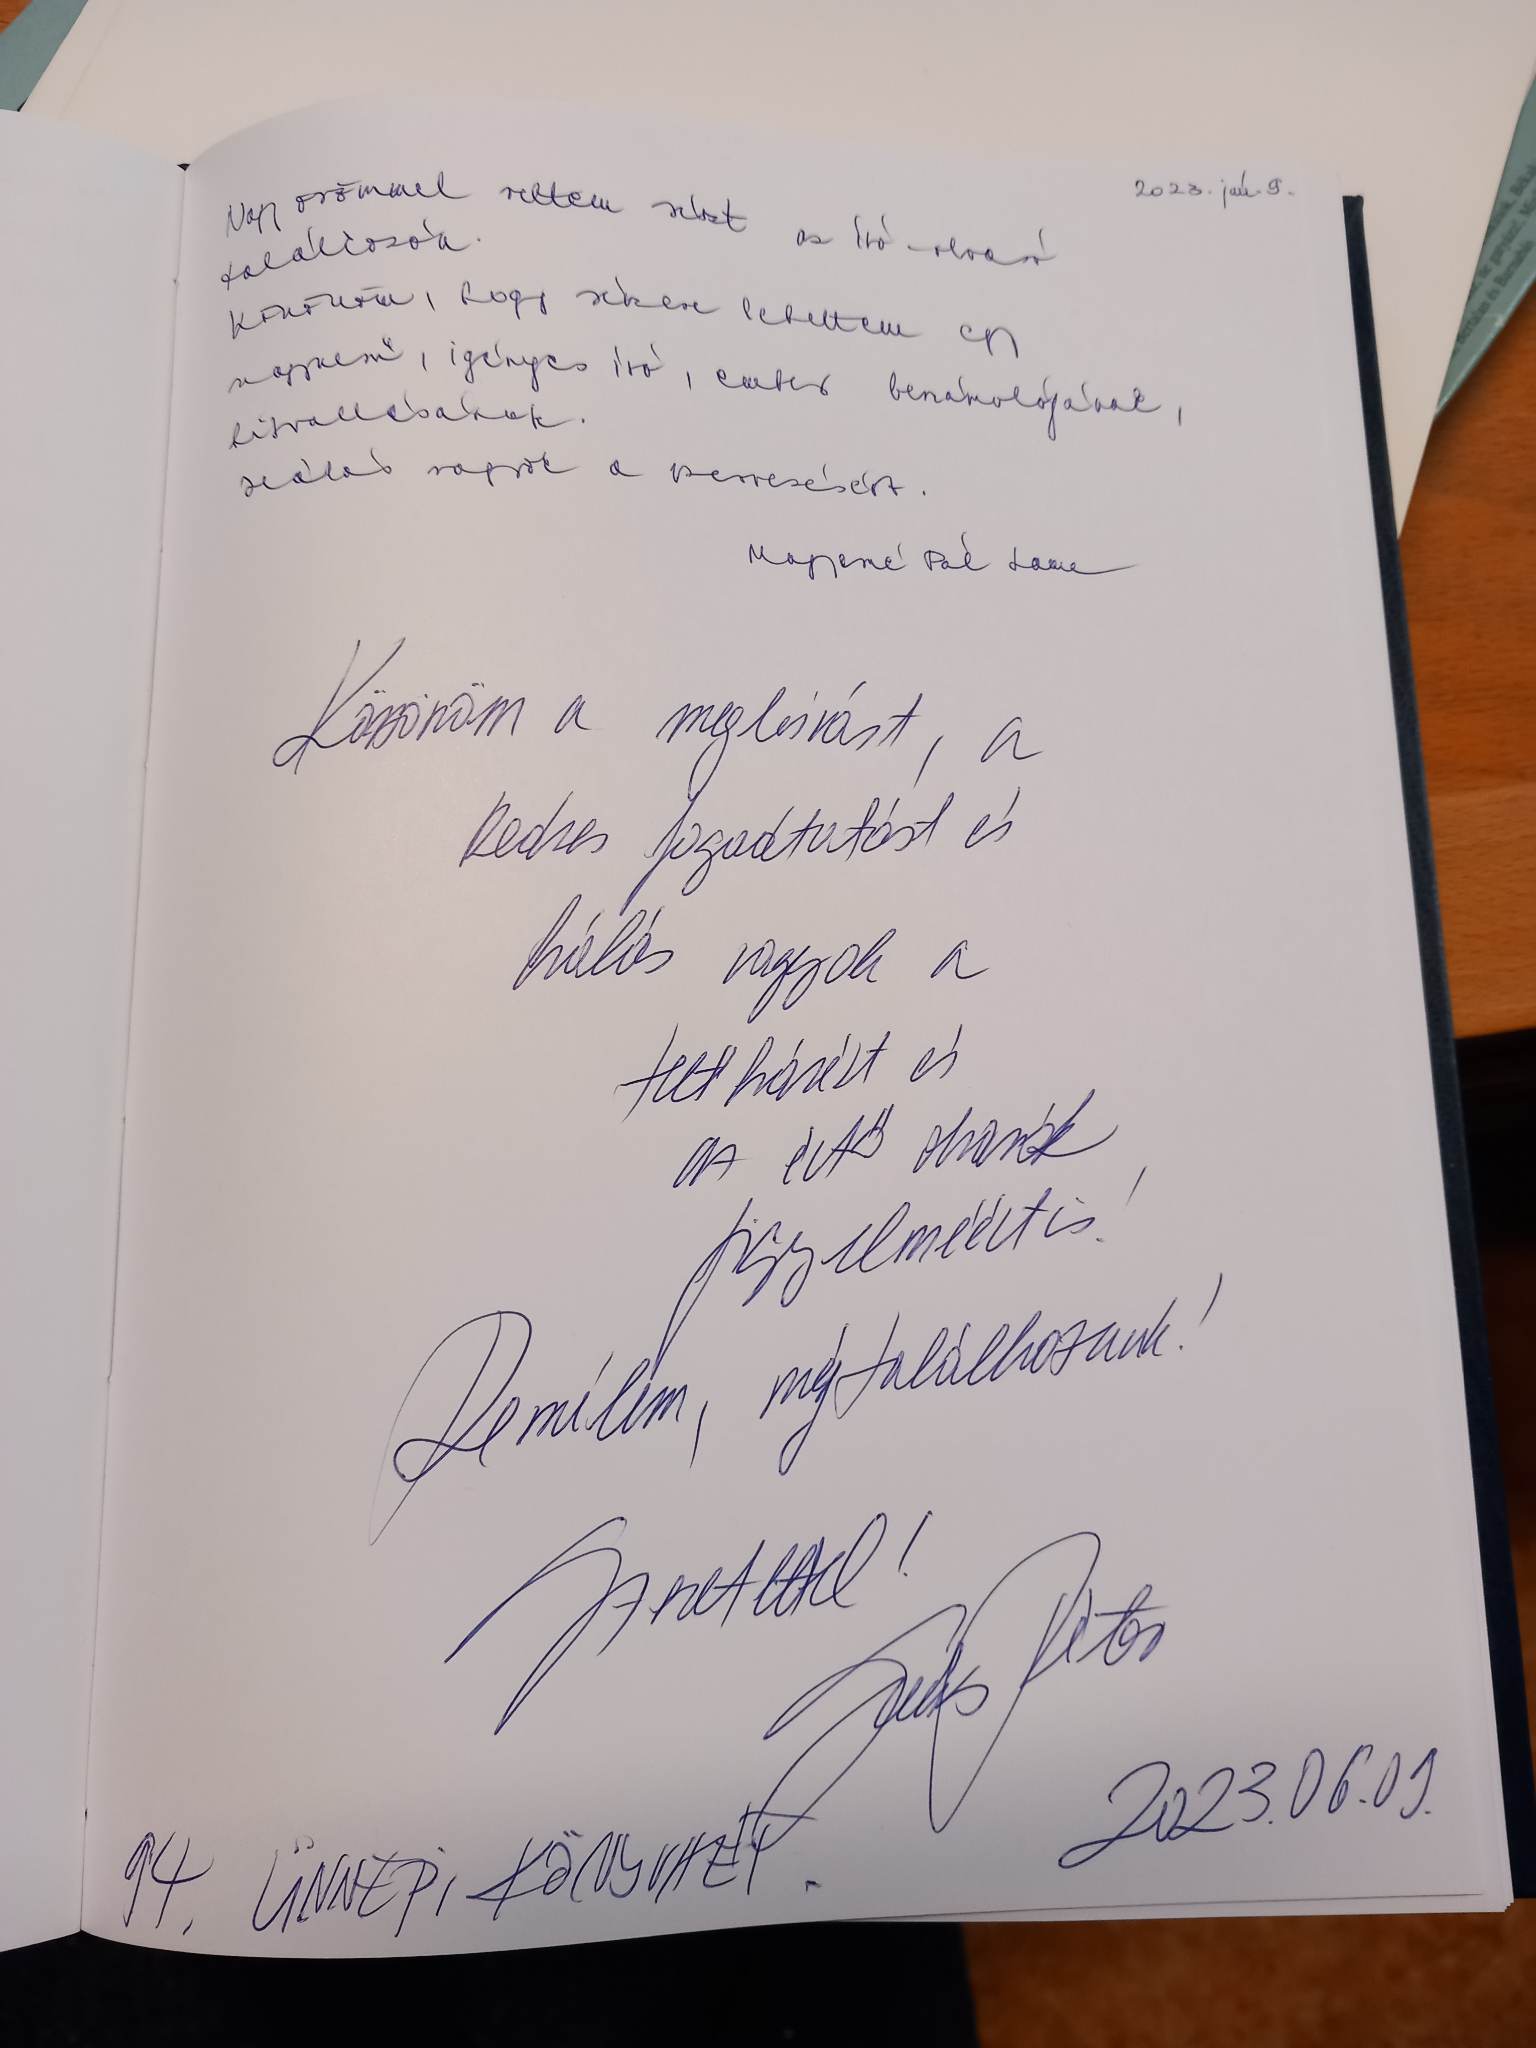 2023. jún. 9.
Nagy örömmel vettem részt az író-olvasó
találkozón.
Köszönöm, hogy részese lehettem egy
nagyszerű, igényes író, ember beszámolójának,
hitvallásának.
Hálás vagyok a szervezésért.
Pál
Köszönöm a meghívást, a
kedves fogadtatást és
hálás vagyok a
teltházért és
az értő olvasók
figyelméért is!
Remélem, még találkozunk!
Szeretettel!
Péter
2023.06.09.
94. ÜNNEPI KÖNYVHÉT.